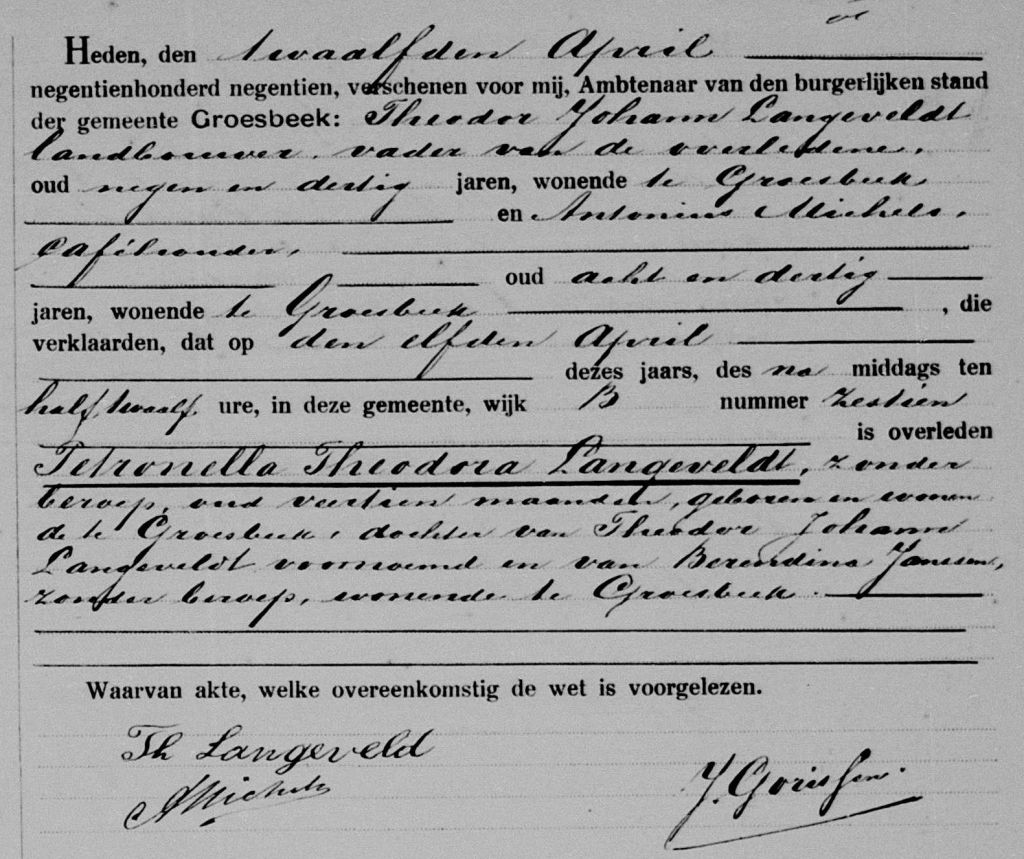 Heden, den twaalfden April
negentienhonderd negentien, verschenen voor mij, Ambtenaar van den burgerlijken stand
der gemeente Groesbeek: Theodor Johann Langeveldt
landbouwer, vader van de overledene,
oud negen en dertig jaren, wonende te Groesbeek
en Antonius Michels,
caféhouder,
oud acht en dertig
jaren, wonende te Groesbeek , die
verklaarden, dat op den elfden April
dezes jaars, des na middags ten
half twaalf ure, in deze gemeente, wijk B nummer zestien
is overleden
Petronella Theodora Langeveldt, zonder
beroep, oud veertien maanden, geboren en wonen
de te Groesbeek, dochter van Theodor Johann
Langeveldt voornoemd en van Berendina Janssen,
zonder beroep, wonende te Groesbeek.
Waarvan akte, welke overeenkomstig de wet is voorgelezen.
Th Langeveld
AMichels
J. Gorissen.